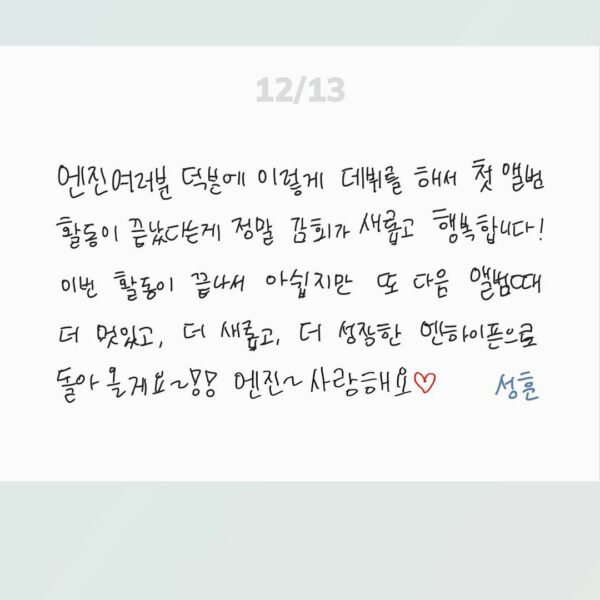 12/13
엔진여러분 덕분에 이렇게 데뷔를 해서 첫 앨범
활동이 끝났다는게 정말 감회가 새롭고 행복합니다!
이번 활동이 끝나서 아쉽지만 또 다음 앨범때
더 멋있고, 더 새롭고, 더 성장한 엔하이픈으로
돌아 올게요~!! 엔진~사랑해요♡ 성훈